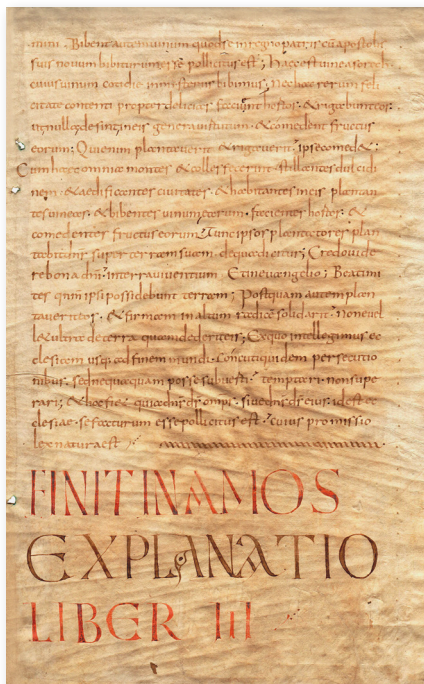 mini . Bibent autem uinum quod se in regno patris cũ apostolis
suis nouum bibiturum esse pollicitus est ; haec est uinea sorech
cuius uinum cotidie in misteriis bibimus . Nec hac rerum feli
citate contenti propter delicias faciunt hortos . & rigabunt eos .
ut nulla desint eis genera uirtutum . & comedent fructus
eorum ; Qui enim plantauerit & rigauerit . ipse comedet ;
Cum haec omnia montes & colles fecerint . stillantes dulcidi
nem . & aedificantes ciuitates . & habitantes in eis plantan
tes uineas . & bibentes uinum earum . facientes hortos . &
comedentes fructus eorum . Tunc ipsos plantatores plan
tabit dñs super terram suam . de qua dicitur ; Credo uide
re bona dñi in terra uiuentium Et in euangelio ; Beati mi
tes qñm ipsi possidebunt terram ; Postquam autem plan
tauerit eos . & firma in altum radice solidarit . Non euel
let ultra de terra quam dederit eis ; Ex quo intellegimus ec
clesiam usq; ad finem mundi . Concuti quidem persecutio
nibus . sed nequaquam posse subuerti . temptari . non supe
rari ; & hoc fiet quia dñs dš omps . siue dñs dš eius . id est ec
clesiae . se facturum esse pollicitus est . cuius promissio
lex naturae est
FINIT IN AMOS
EXPLANATIO
LIBER III